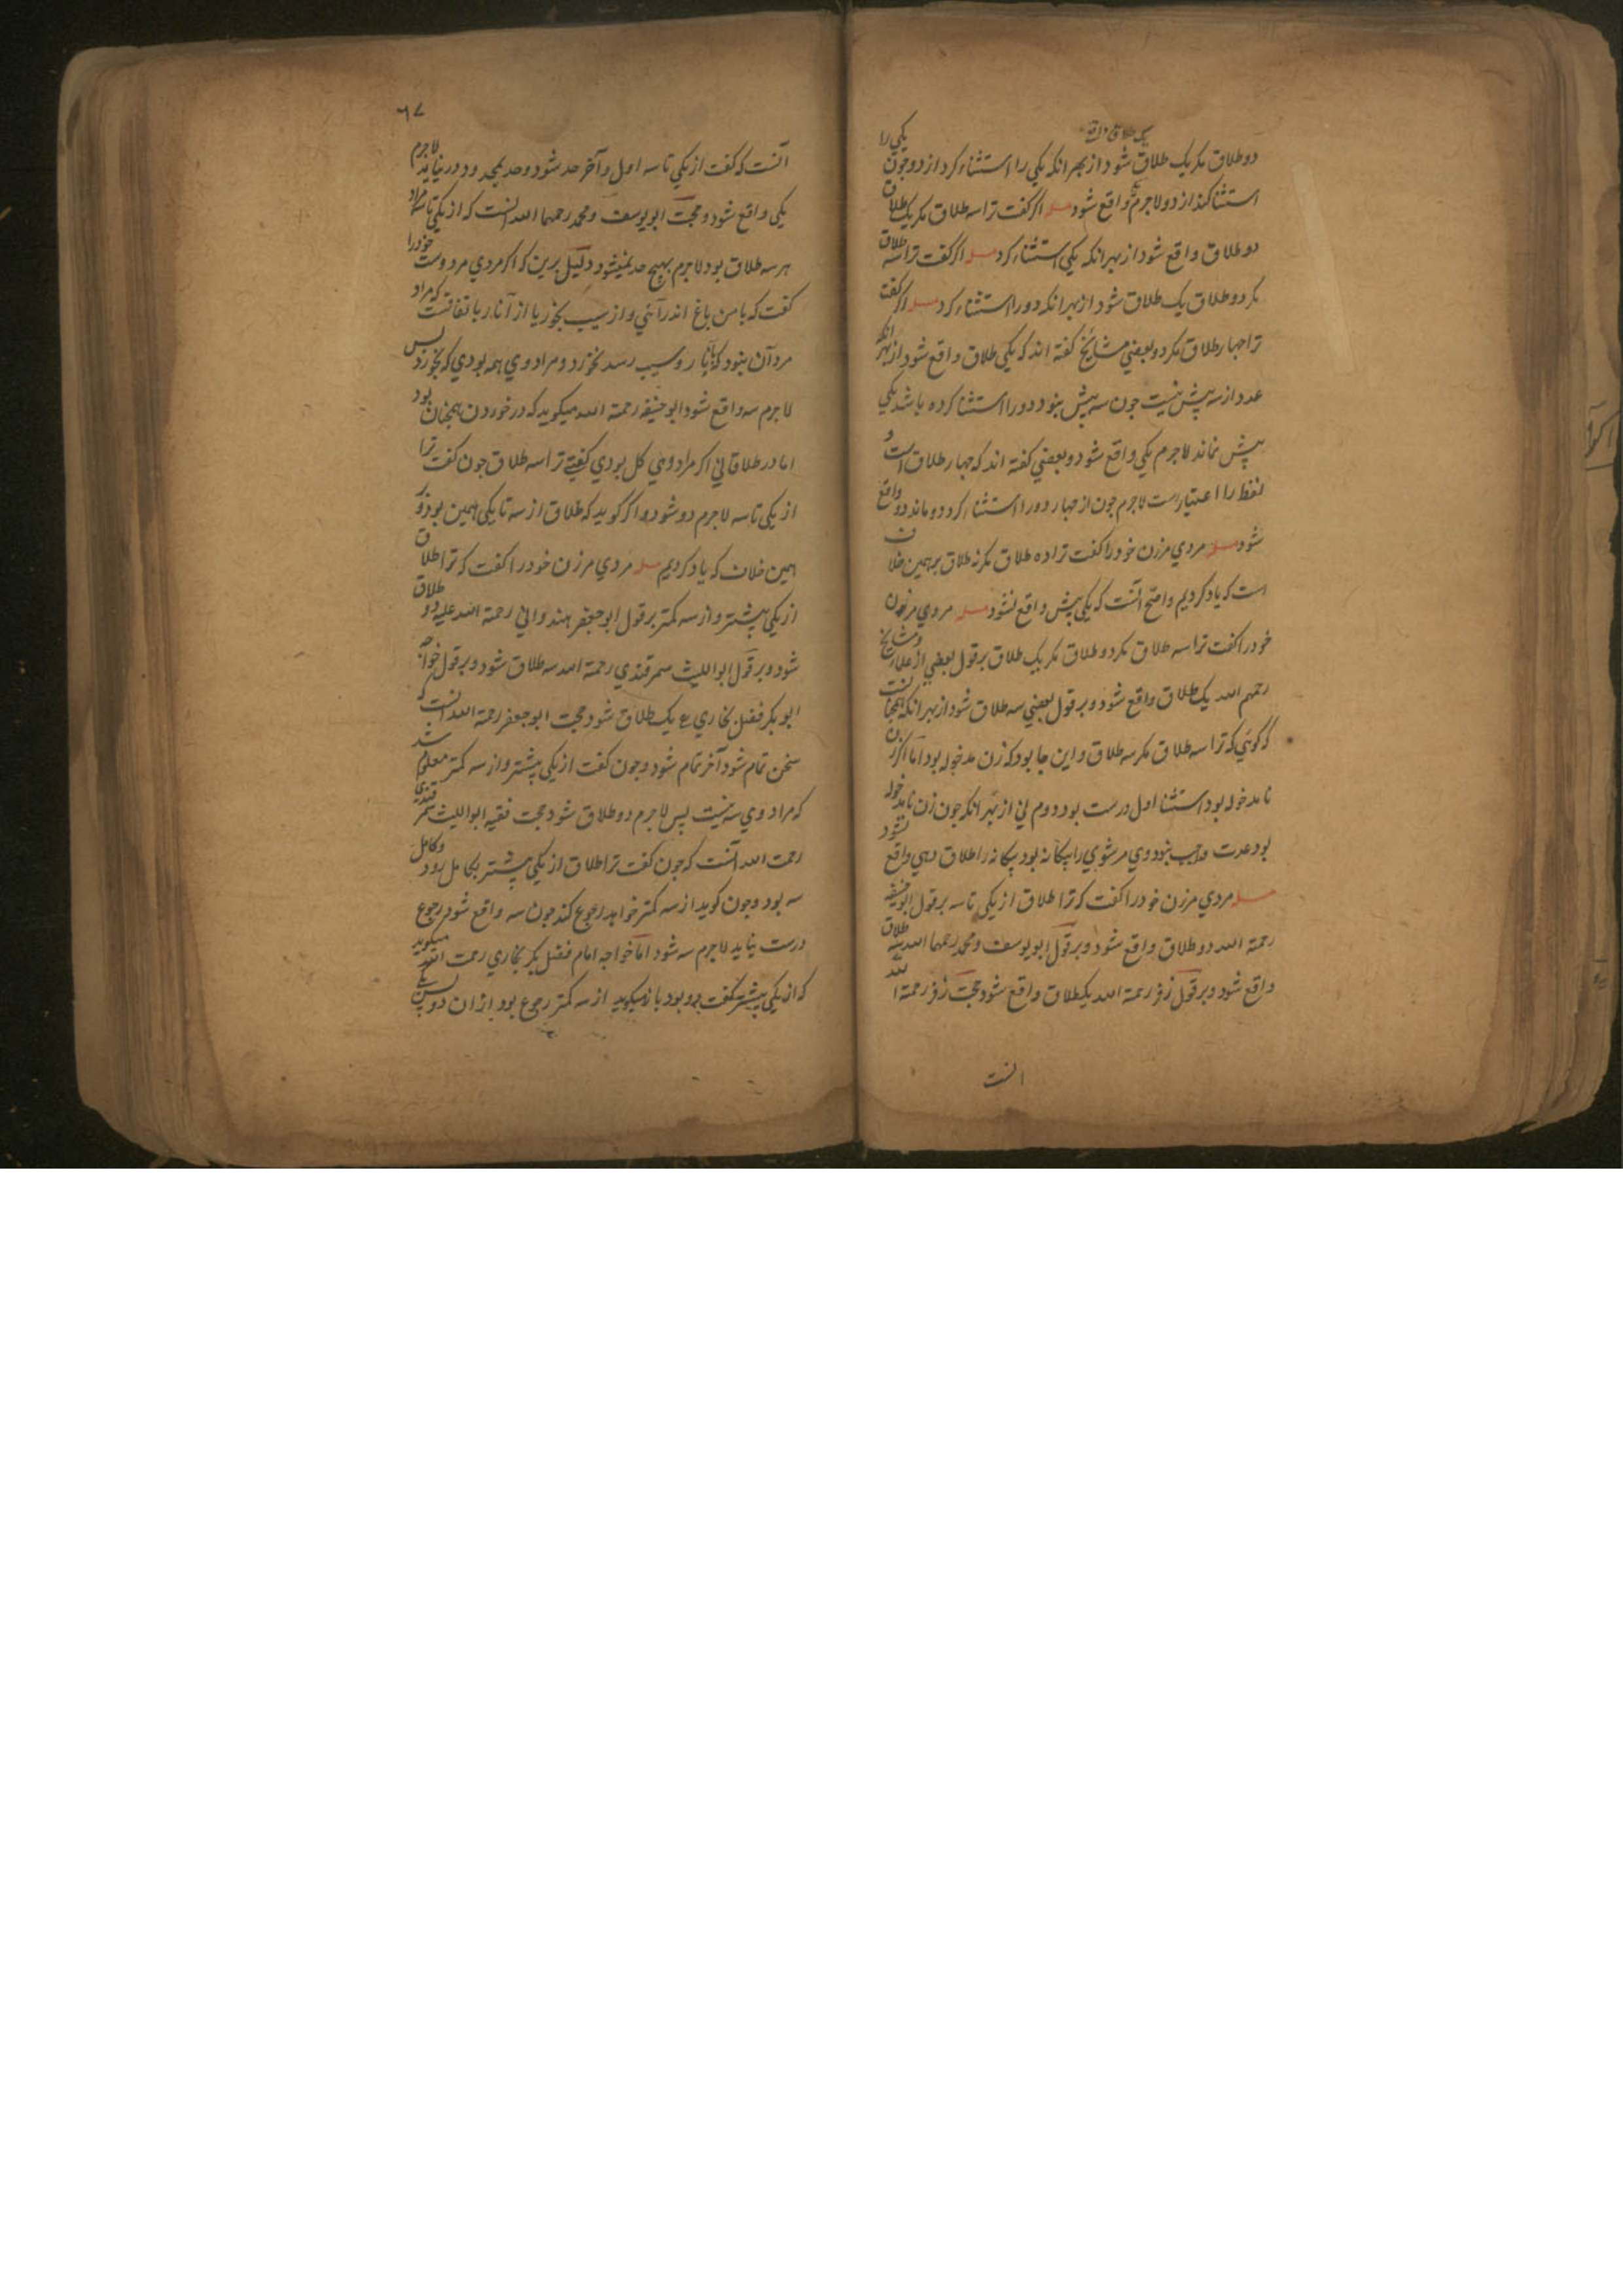 یک طلاق واقع
دو طلاق مکر یک طلاق شود از بهر انکه یکی را استثناء کرد از دو چون یکی را
استثنا کند از دو لاجرم یکی واقع شود مسله اکر کفت ترا سه طلاق مکر یک طلاق
دو طلاق واقع شود از بهر انکه یکی استثناء کرد مسله اکر کفت ترا سه طلاق
مکر دو طلاق یک طلاق شود از بهر انکه دو را استثناء کرد مسله اکر کفت
ترا جهار طلاق مکر دو بعضی مشایخ کفته اند که یکی طلاق واقع شود از بهر انکه
عدد از سه پیش نیست جون سه پیش نبود دو را استثنا کرده باشد یکی
پیش نماند لاجرم یکی واقع شود و بعضی کفته اند که جهار طلاق است و
لفظ را اعتبار است لاجرم جون از جهار دو را استثناء کرد دو ماند دو واقع
شود مسله مردی مر زن خود را کفت ترا ده طلاق مکر نه طلاق بر همین خلاف
است که یاد کردیم واصح آنست که یکی پیش واقع نشود مسله مردی مر زن
خود را کفت ترا سه طلاق مکر دو طلاق مکر یک طلاق بر قول بعضی از علماء و مشایخ
رحمهم الله یک طلاق واقع شود و بر قول بعضی سه طلاق شود از بهر انکه همچنانست
که کوئی که ترا سه طلاق مکر سه طلاق و این جا بود که زن مدخوله بود اما اکر زن
نامدخوله بود استثنا اول درست بود دوم نی از بهر انکه جون زن نامدخوله
بود عدت واجب نبود وی مر شوی را بیکانه بود بیکانه را طلاق دهی واقع نشود
مسله مردی مر زن خود را کفت که ترا طلاق از یکی تا سه بر قول ابوحنیفه
رحمة الله دو طلاق واقع شود و بر قول ابو یوسف و محمد رحمهما الله سه طلاق
واقع شود و بر قول زفر رحمة الله یکطلاق واقع شود حجت زفر رحمة الله
انست
٦٧
آنست که کفت از یکی تا سه اول و آخر حد شود و حد بمحدود در نیاید لاجرم
یکی واقع شود و حجت ابو یوسف و محمد رحمهما الله انست که از یکی تا سه مراد
هر سه طلاق بود لاجرم بهیچ حد نمیشود دلیل برین که اکر مردی مر دوست خود را
کفت که با من باغ اندر آئی و از سیب بخور یا از آنار باتفاقست که مراد
مرد آن نبود که تا بانار و سیب رسد نخورد و مراد وی همه بودی که بخورد پس
لاجرم سه واقع شود ابو حنیفه رحمة الله میکوید که در خوردن همچنان بود
اما در طلاق نی اکر مراد وی کل بودی کفتی ترا سه طلاق جون کفت ترا
از یکی تا سه لاجرم دو شود و اکر کوید که طلاق از سه تا یکی همین بود و بر
همین خلاف که یاد کردیم مسله مردی مر زن خود را کفت که ترا طلاق
از یکی پیشتر و از سه کمتر بر قول ابو جعفر هندوانی رحمة الله علیه دو طلاق
شود و بر قول ابو اللیث سمرقندی رحمة الله سه طلاق شود و بر قول خواجه
ابو بکر فضل بخاری ع یک طلاق شود حجت ابو جعفر رحمة الله انست که
سخن تمام شود آخر تمام شود و جون کفت از یکی پیشتر و از سه کمتر معلوم شد
که مراد وی سه نیست پس لاجرم دو طلاق شود حجت فقیه ابو اللیث سمرقندی
رحمت الله آنست که جون کفت ترا طلاق از یکی پیشتر بکامل رود و کامل
سه بود و جون کوید از سه کمتر خواهد رجوع کند جون سه واقع شود رجوع
درست نیاید لاجرم سه شود اما خواجه امام فضل بکر بخاری رحمت الله میکوید
که از یکی پیشتر کفت دو بود باز میکوید از سه کمتر رجوع بود از ان دو پس یکی